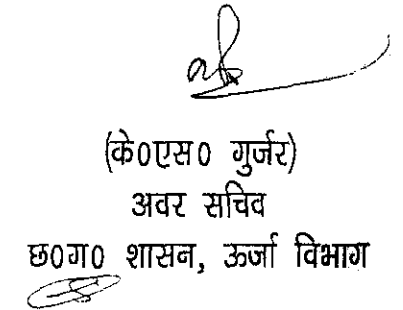 (के०एस० गुर्जर)
अवर सचिव
छ०ग० शासन, ऊर्जा विभाग